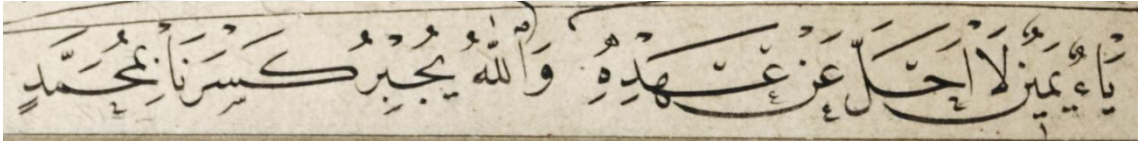 يَاءٌ يَمِينٌ لَا اَحَلَّ عَنْ عَهْدِهِ وَاللهُ يُجْبِرُ كَسْرَنَا بِمُحَمَّدٍ